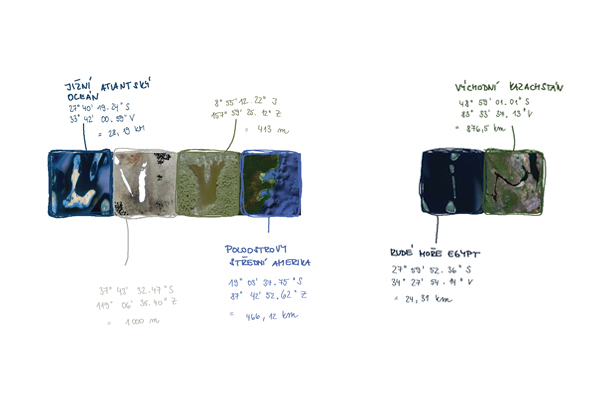 JIŽNÍ ATLANTSKÝ
OCEÁN
27° 40' 19.24" S
33° 42' 00.59" V
= 28,19 KM
8° 55' 12.22" J
157° 59' 25.12" Z
= 413 m
VÝCHODNÍ KAZACHSTÁN
48° 59' 01.01" S
83° 53' 34.13" V
= 876,5 km
37° 43' 32.47" S
119° 06' 35.40" Z
= 1000 m
POLOOSTROVY
STŘEDNÍ AMERIKA
19° 05' 34.75" S
87° 42' 52.62" Z
= 466,12 km
RUDÉ MOŘE EGYPT
27° 59' 52.36" S
34° 27' 54.14" V
= 24,31 km